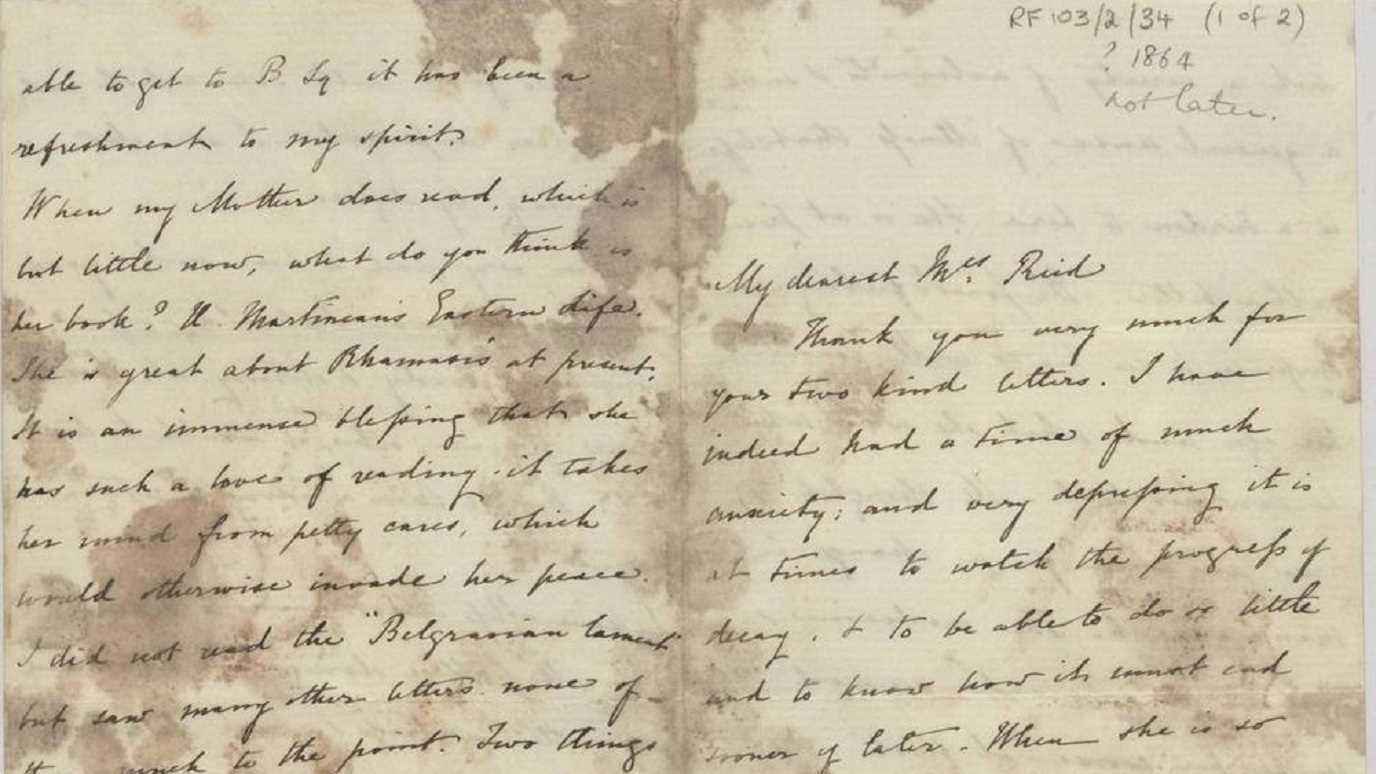 able to get to B Sq it has been a
refreshment to my spirit.
When my Mother does read, which is
but little now, what do you think is
her book? H. Martineau's Eastern Life.
She is great about Rhamases at present.
It is an immense blessing that she
has such a love of reading. it takes
her mind from petty cares, which
would otherwise invade her peace.
I did not read the "Belgravian lament"
but saw many other letters. none of
much to the point. Two things
RF 103/2/34 (1 of 2)
? 1864
not later.
My dearest Mrs. Reid
Thank you very much for
your two kind letters. I have
indeed had a time of much
anxiety; and very depressing it is
at times to watch the progress of
decay. & to be able to do so little
and to know how it must end
sooner or later. When she is so